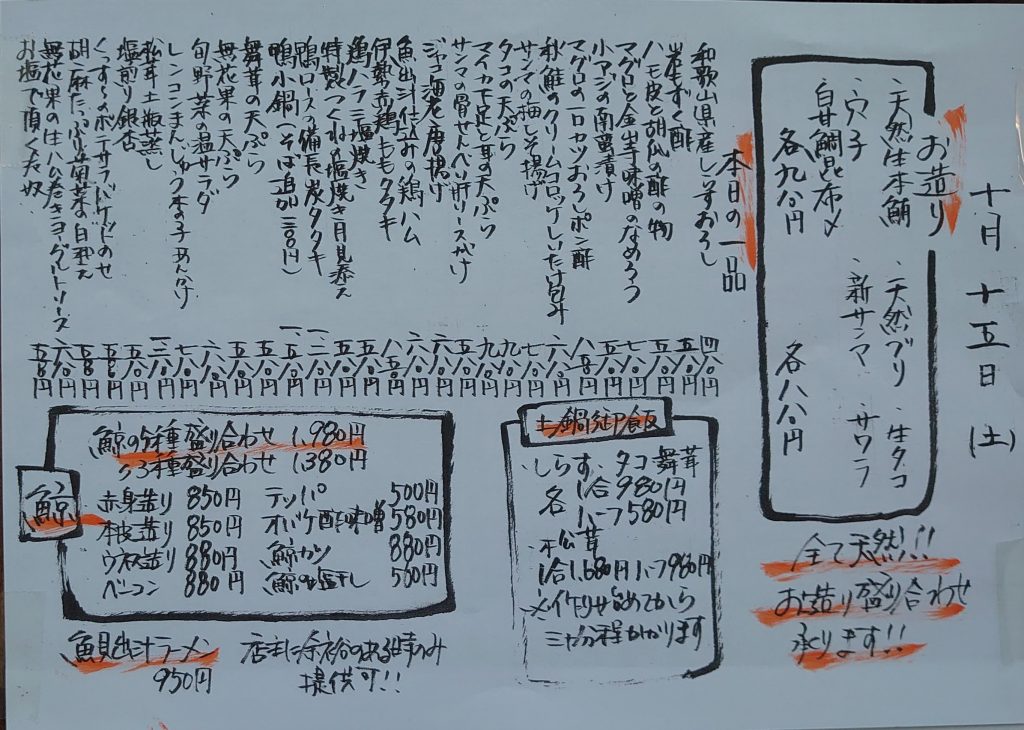 十月十五日(土)
お造り
・天然生本鮪
・穴子
白甘鯛昆布〆
各九八〇円
・天然ブリ
・生タコ
・新サンマ
・サワラ
各八八〇円
全て天然!!
お造り盛り合わせ
承ります!!
本日の一品
和歌山県産しらすおろし 四八〇円
岩もずく酢 五八〇円
ハモ皮と胡瓜の酢の物
マグロと金山寺味噌のなめろう
小アジの南蛮漬け
マグロの一口カツおろしポン酢
秋鮭のクリームコロッケしいたけ包み
サンマの梅しそ揚げ
タコの天ぷら
マイカ下足と耳の天ぷら
サンマの骨せんべい肝ソースがけ
ジャコ海老唐揚げ
魚出汁仕込みの鶏ハム
伊勢赤鶏ももタタキ
鶏ハラミ塩焼き
特製つくね塩焼き月見添え
鴨ロースの備長炭タタキ
鴨小鍋(そば追加三三〇円)
舞茸の天ぷら
無花果の天ぷら
旬野菜の温サラダ
レンコンまんじゅうきの子あんかけ
松茸土瓶蒸し
塩煎り銀杏
くっす〜のポテサラバゲットのせ
胡麻たっぷり南菜の白和え
無花果の生ハム巻きヨーグルトソース
お塩で頂く冷奴
土鍋御飯
・しらす・タコ・舞茸
各 1合980円
ハーフ580円
・松茸
1合1,680円ハーフ980円
※作り始めてから
三十分程かかります
鯨
鯨の5種盛り合わせ 1,980円
〃3種盛り合わせ 1,380円
赤身造り 850円 テッパ 500円
本皮造り 850円 オバケ酢味噌 580円
ウネ造り 880円 鯨カツ 880円
ベーコン 880円 鯨塩干し 560円
魚貝出汁ラーメン
950円
店主に余裕のある時のみ
提供可!!